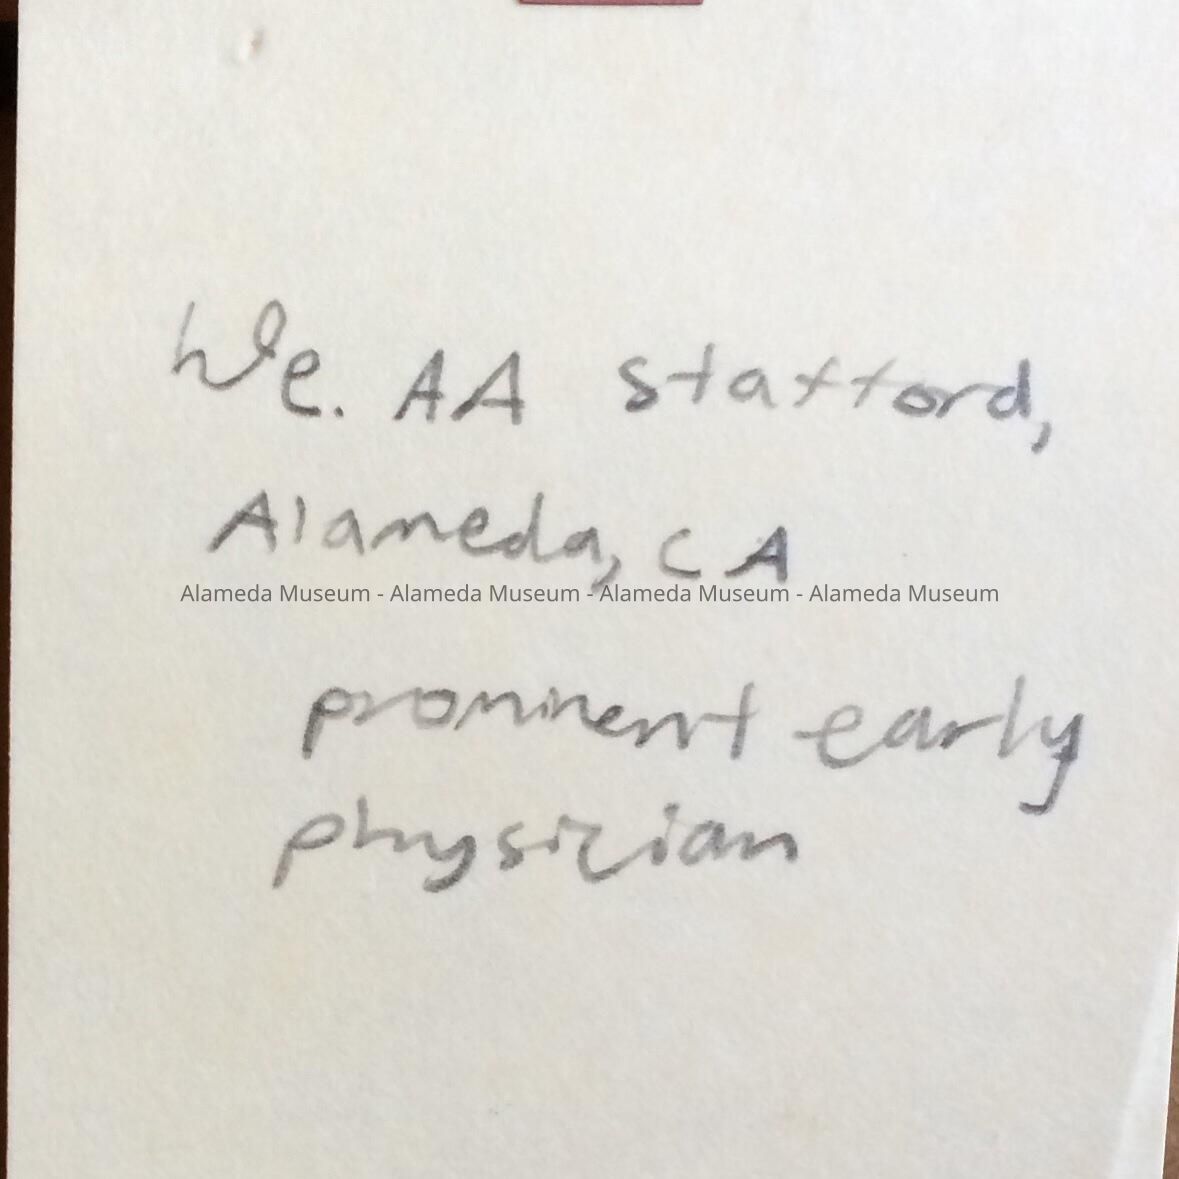 We. AA Stafford,
Alameda, CA
Alameda Museum - Alameda Museum - Alameda Museum - Alameda Museum
prominent early
physician